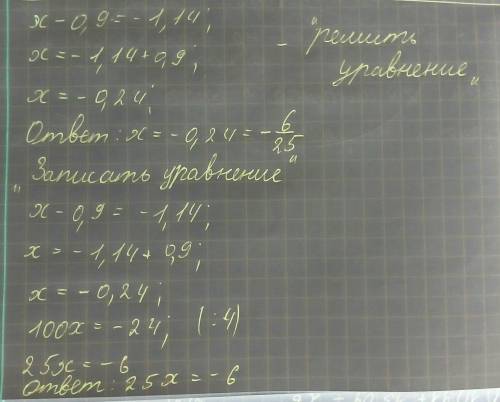 x - 0,9 = -1,14;
x = -1,14 + 0,9;
x = -0,24;
- "решить
уравнение"
Ответ: x = -0,24 = -6/25
"Записать уравнение"
x - 0,9 = -1,14;
x = -1,14 + 0,9;
x = -0,24;
100x = -24; (:4)
25x = -6
Ответ: 25x = -6